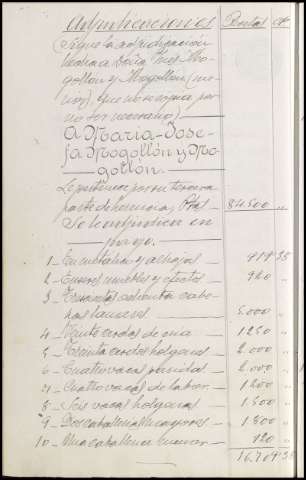 Adjudicaciones Pesetas Ct
(Sigue la adjudicación
hecha a Doña Inés Mo-
gollon y Mogollon (me-
nor), que no se signa por
no ser necesario)
A María-Jose-
fa Mogollón y Mo-
gollon.
Le pertenece por su tercera
parte de herencia, Ptas. 84.500 "
Se le adjudica en
pago.
1 - En metalico y alhajas 919 35
2 Enseres muebles y efectos 920 "
3 cabe-
zas lanares 5.000 "
4 Veinte cerdas de cria 1250 "
5 Treinta cerdos holgones 2.000 "
6 Cuatro vacas paridas 2.000 "
7 Cuatro vacas de labor 1.200 "
8 Seis vacas holgonas 1.500 "
9 Dos caballerias mayores 1.800 "
10 - Una caballeria menor 120 "
16.709 35